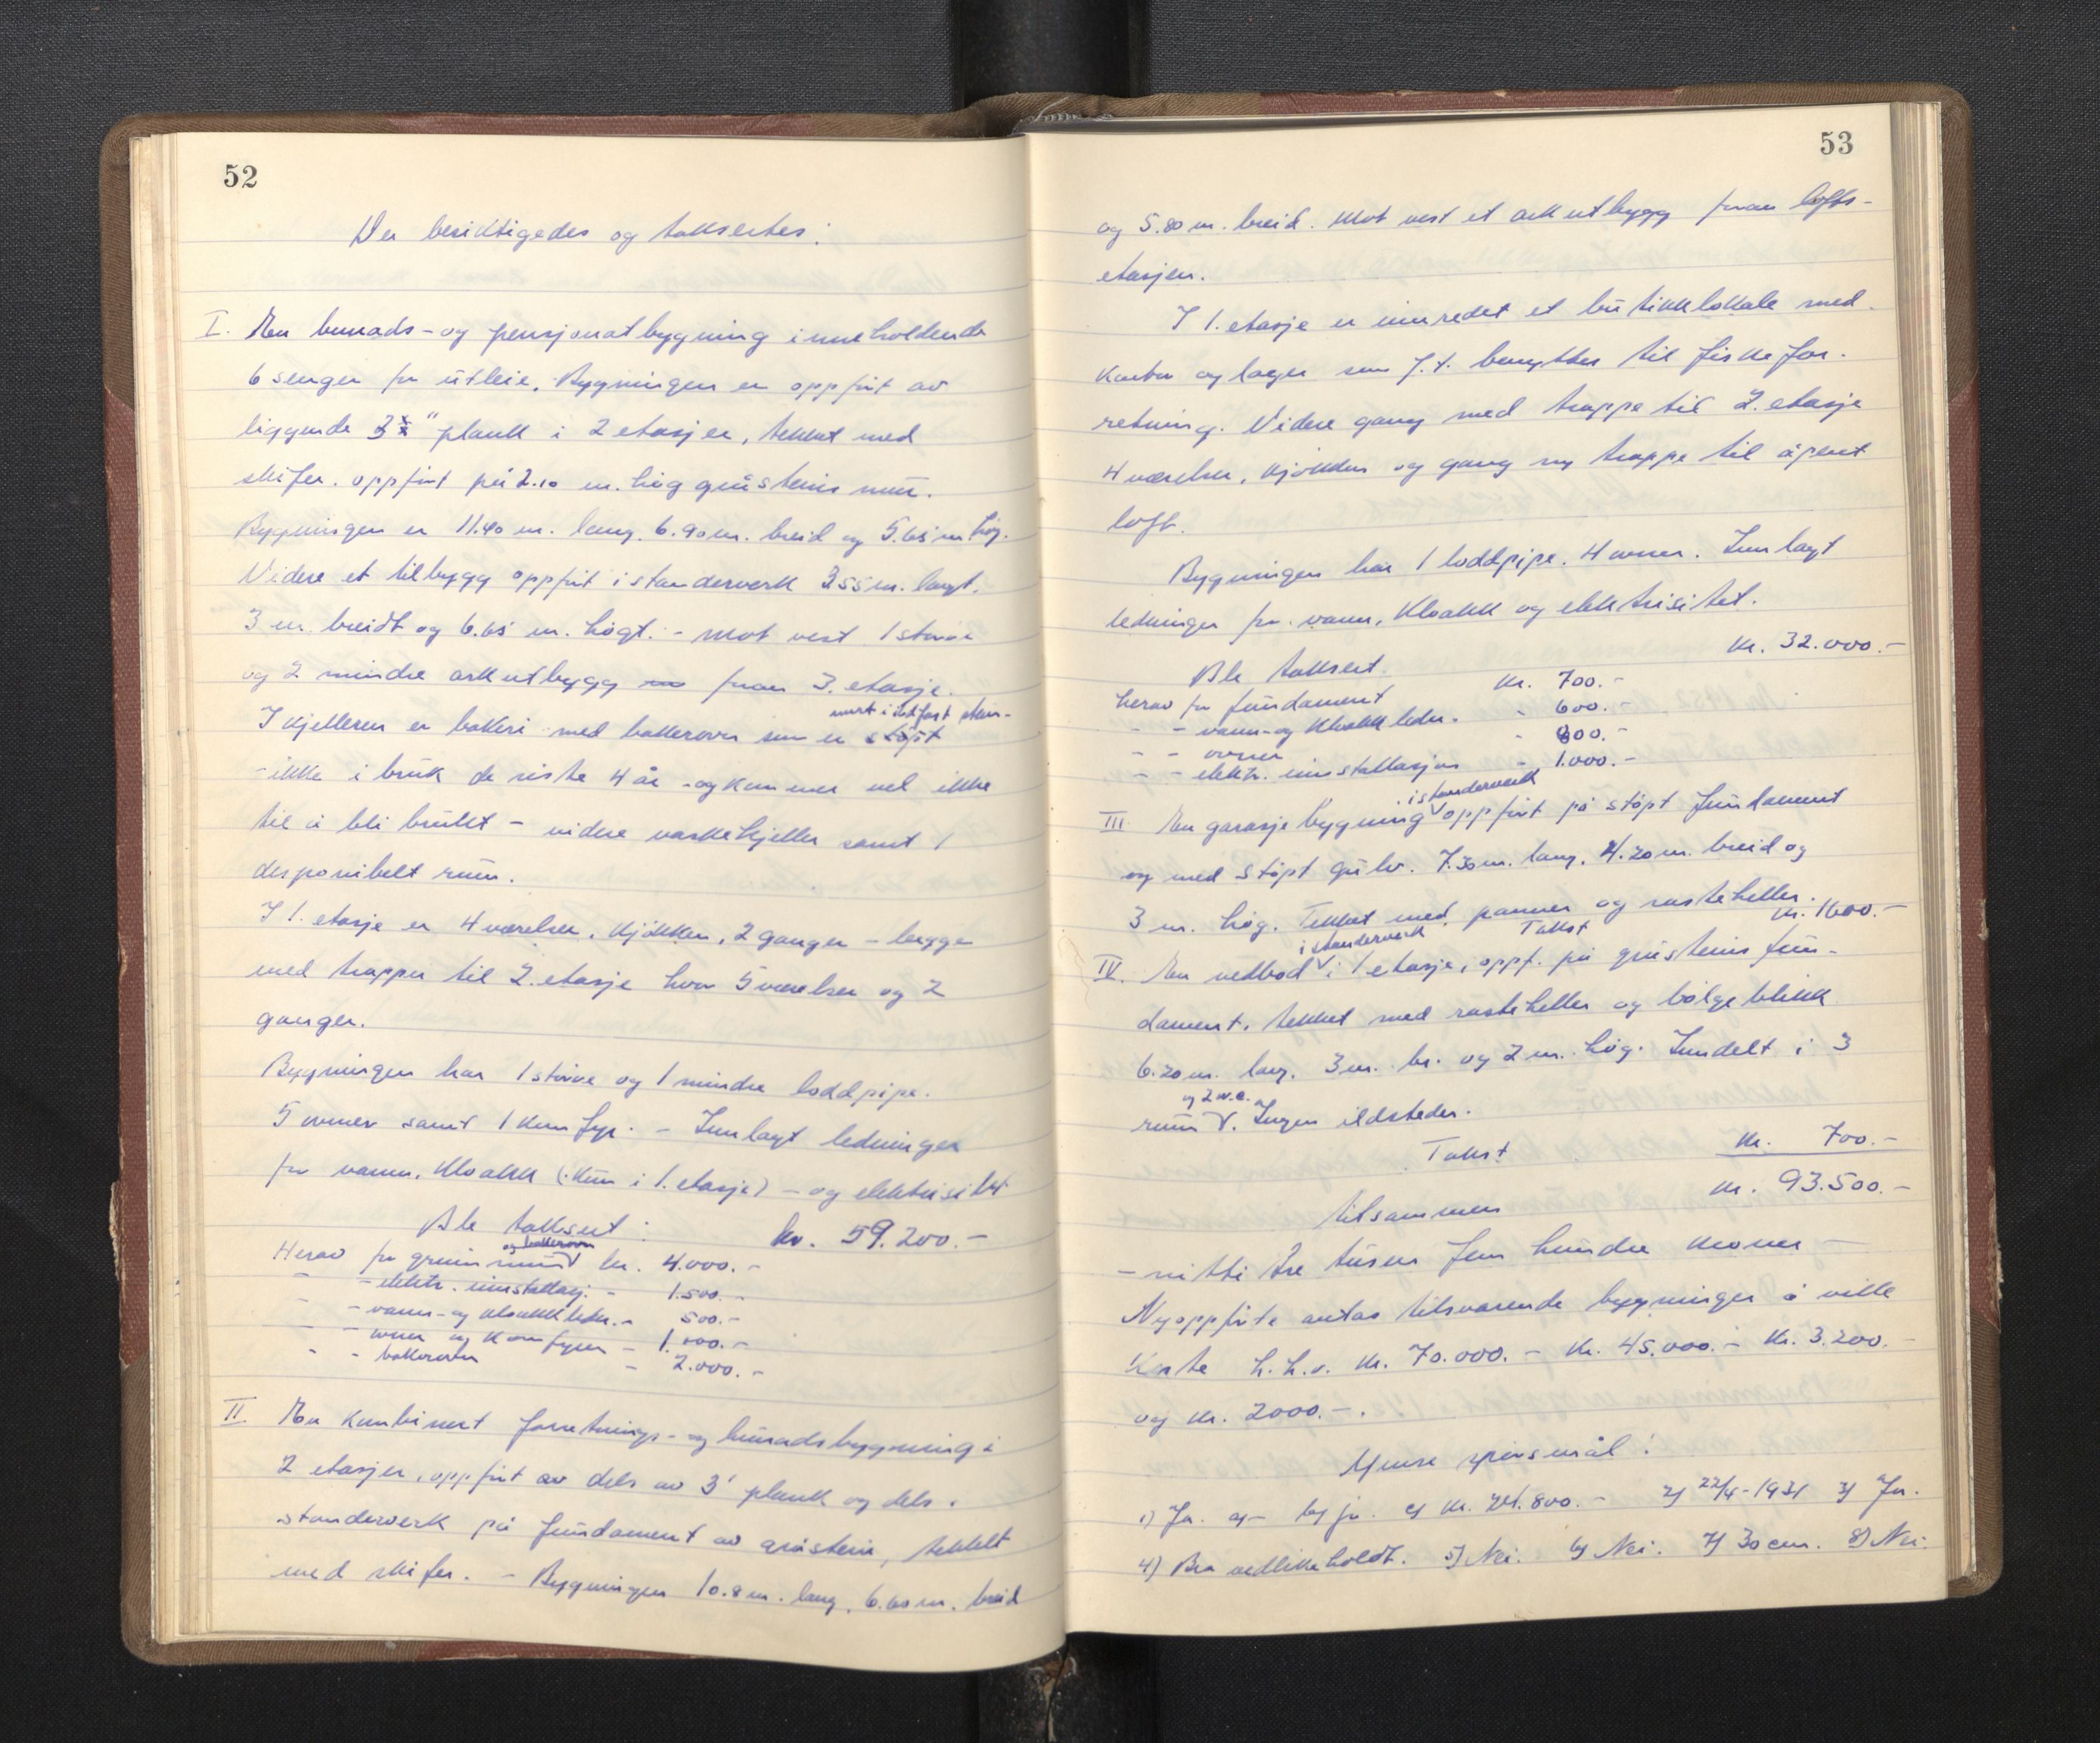 52
Der besiktigedes og takseertes:
I. En bunads- og pensjonatbygning inneholdende
6 senger for utleie. Bygningen er oppført av
liggende 3" plank i 2 etasjer, tekket med
skifer. oppført på 2.10 m. høg gråsteins mur.
Bygningen er 11.40 m. lang. 6.90 m. breid og 5.65 m. høg.
Videre et tilbygg oppført i standerverk 3.55 m. langt.
3 m. breidt og 6.65 m. høgt. - Mot vest 1 større
og 2 mindre arkutbygg fram 3. etasje.
I kjelleren er bakeri med bakerovn som er støpt
murt i ildfast stein-
- ikke i bruk de siste 4 år - og kommer vel ikke
til å bli brukt - videre vaskekjeller samt 1
desponibelt rum.
I 1. etasje er 4 værelser. Kjøkken, 2 ganger - begge
med trapper til 2. etasje hvor 5 værelser og 2
ganger.
Bygningen har 1 større og 1 mindre loddpipe.
5 ovner samt 1 komfyr. - Innlagt ledninger
for vann. Kloakk (kun i 1. etasje) - og elektrisitet
Ble taksert: kr. 59.200.-
og bakerovn
Herav for grunnmur kr. 4.000.-
- - elektr. innstallasj. - 1.500.-
- - vann- og kloakkledn. - 500.-
- - ovner og komfyrer - 1.000.-
- - bakerovn - 2.000.-
II En kombinert forretnings- og bunadsbygning i
2 etasjer, oppført av dels av 3" plank og dels i
standerverk på fundament av gråstein, tekket
med skifer. - Bygningen 10.8 m. lang, 6.60 m. breid
53
og 5.80 m. breid. Mot vest et arkutbygg fram lofts-
etasjen.
I 1. etasje er innredet et butikklokale med
kontor og lager som f.t. benyttes til fiskefor-
retning. Videre gang med trappe til 2. etasje
4 værelser, kjøkken og gang og trappe til åpent
loft.
Bygningen har 1 loddpipe. 4 ovner. Innlagt
ledninger for vann, Kloakk og elektrisitet.
Ble taksert. kr. 32.000.-
herav for fundament kr. 700.-
- - vann- og kloakkledn. - 600.-
- - ovner - 800.-
- - elektr. innstallasjon - 1.000.-
i standerverk
III En garasjebygning oppført på støpt fundament
og med støpt gulv. 7.30 m. lang. 4.20 m. breid og
3 m. høg. Tekket med panner og rasteheller.
Takst kr. 1600.-
i standerverk
IV. En vedbod i 1 etasje, oppf. på gråsteins fun-
dament. tekket med rasteheller og bølgeblikk
6.20 m. lang. 3 m. br. og 2 m. høg. Inndelt i 3
og 2 w.c.
rum. Ingen ildsteder.
Takst kr. 700.-
tilsammen kr. 93.500.-
- nitti tre tusen fem hundre kroner -
Nyoppførte antas tilsvarende bygninger å ville
koste h.h.v. kr. 70.000.- kr. 45.000.- kr. 3.200.-
og kr. 2000.-.
Ymse spørsmål:
1) Ja. a)- b) ja. c) kr. 24.800.- 2) 22/4-1931 3) Ja.
4) Bra vedlikeholdt. 5) Nei. 6) Nei. 7) 30 cm. 8) Nei.